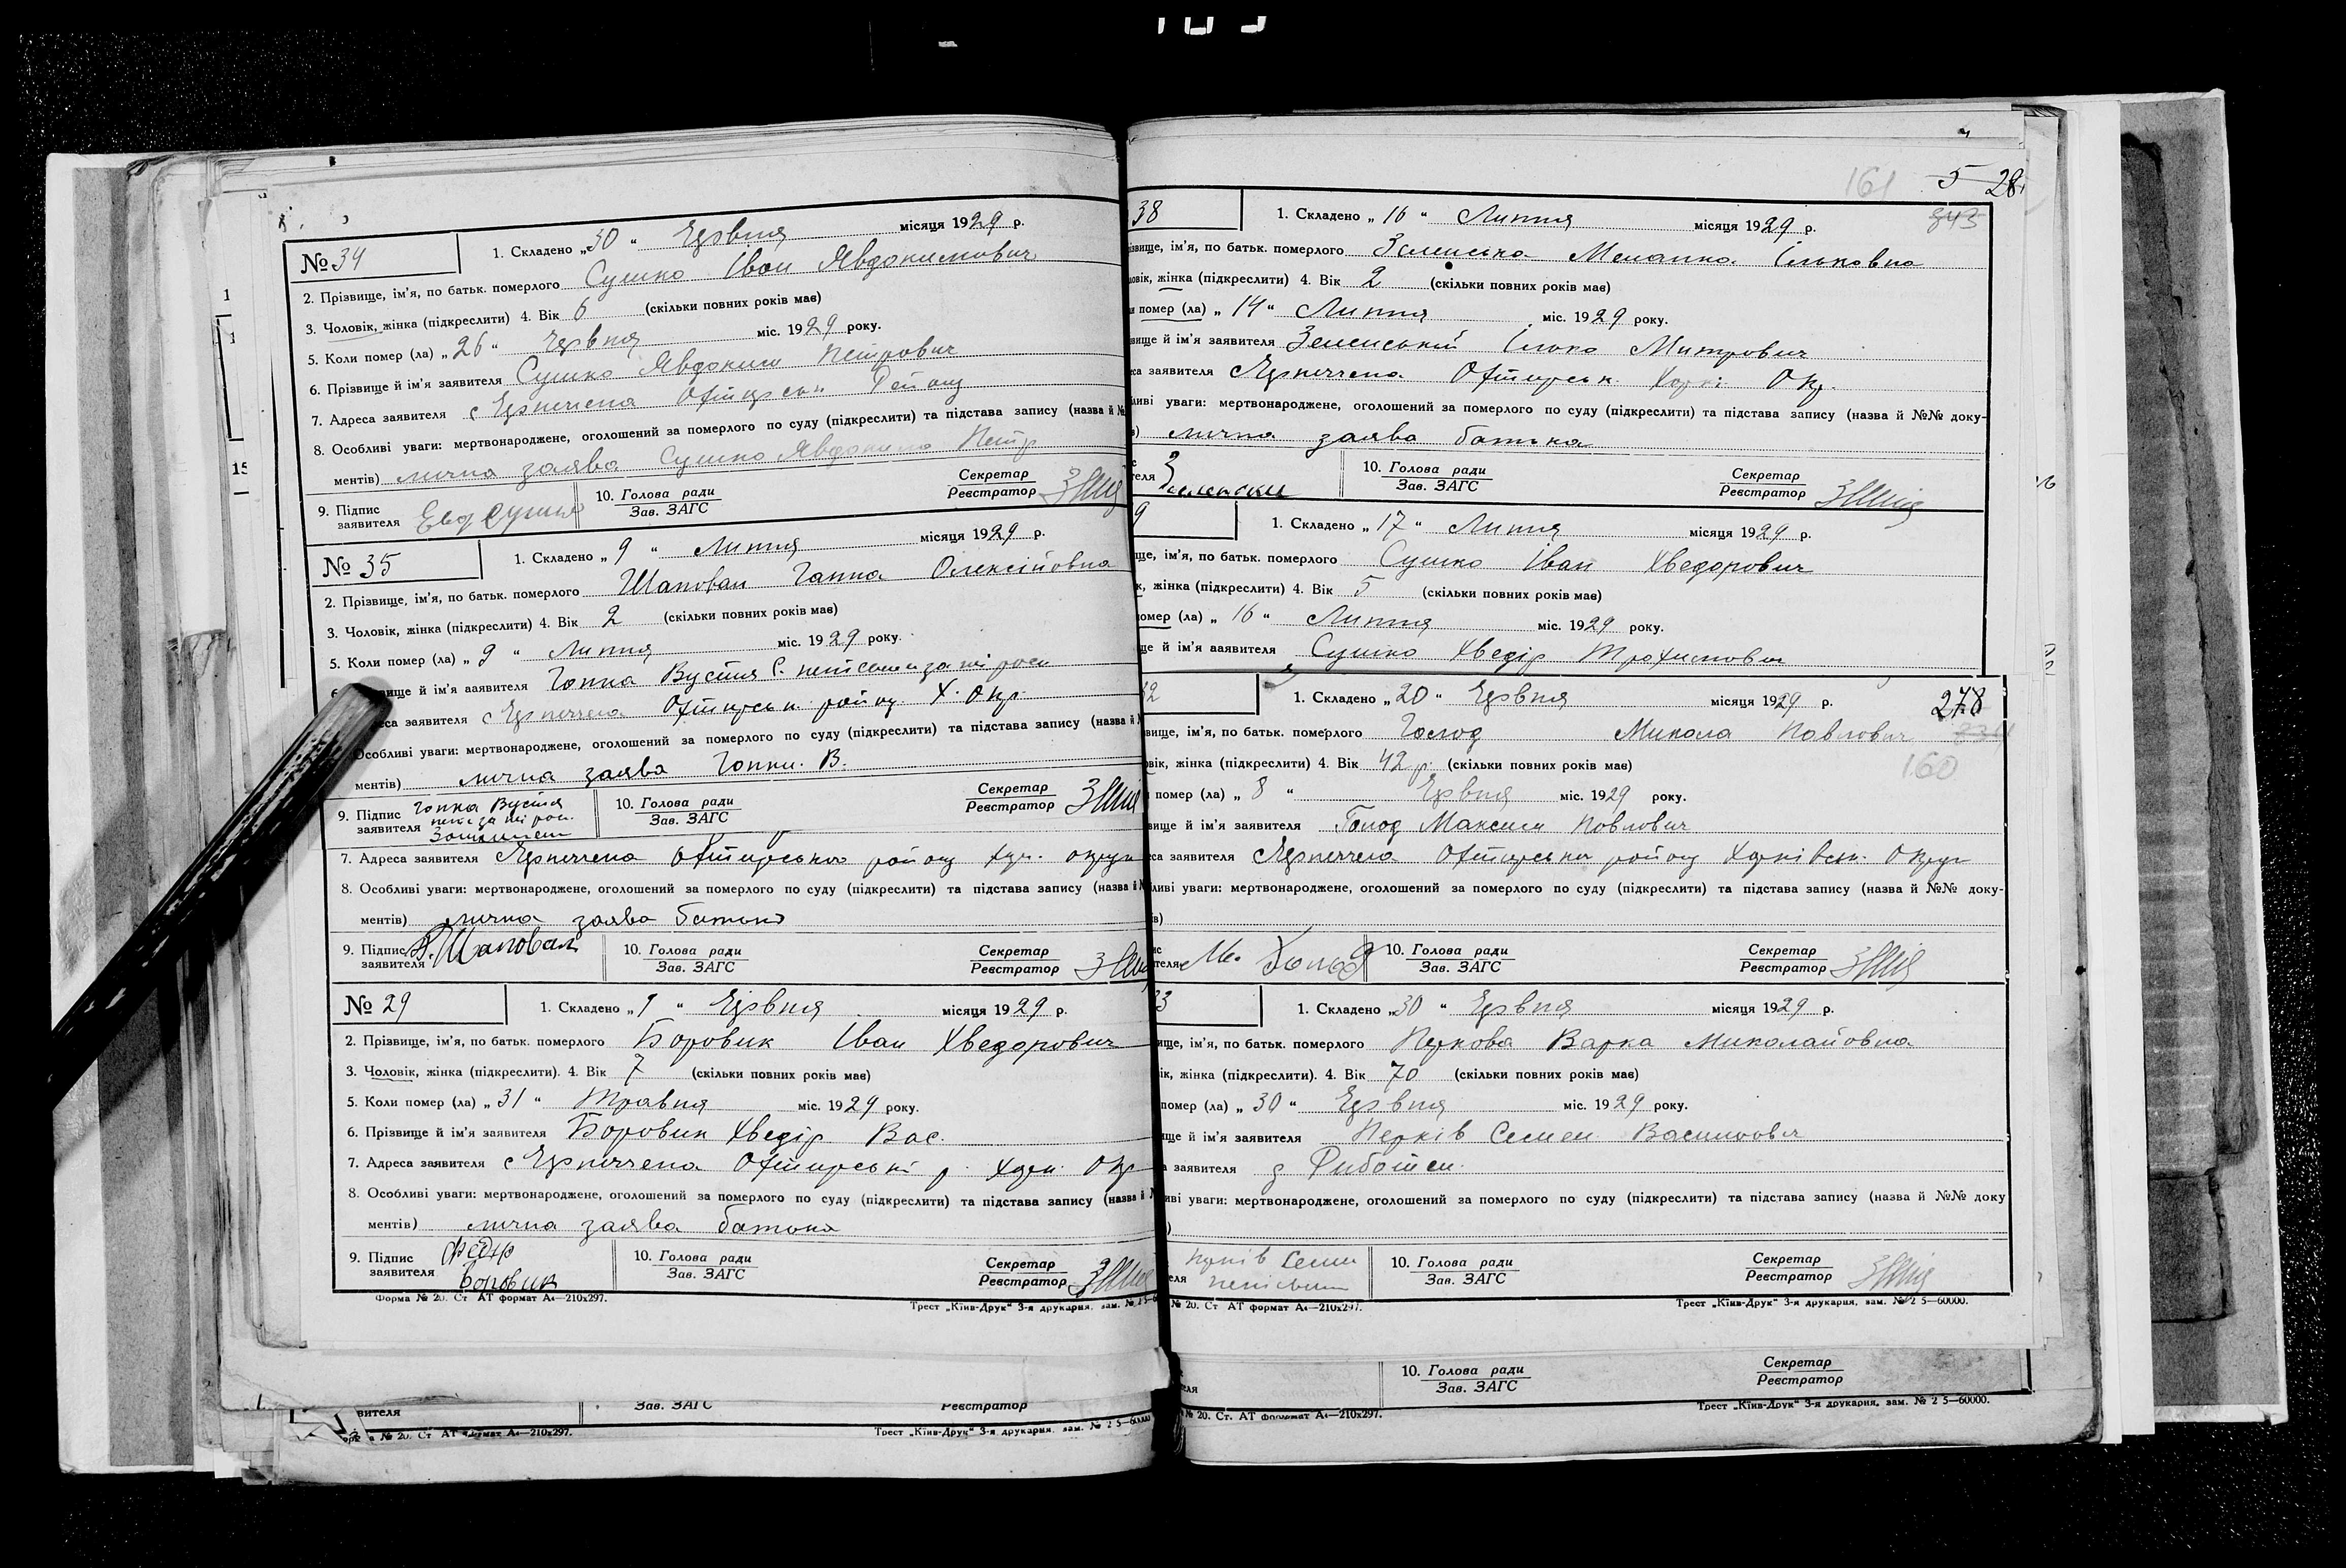 № 34
1. Складено „30“ Червня місяця 1929 р.
2. Прізвище, ім'я, по батьк. померлого Сушко Іван Явдокимович
3. Чоловік, жінка (підкреслити) 4. Вік 6 (скільки повних років має)
5. Коли помер (ла) „26“ Червня міс. 1929 року.
6. Прізвище й ім'я заявителя Сушко Явдоким Петрович
7. Адреса заявителя с Охтирськ Району
8. Особливі уваги: мертвонароджене, оголошений за померлого по суду (підкреслити) та підстава запису (назва й №
ментів) лична заява Сушко Явдокима Петр
9. Підпис заявителя Евд Сушко 10. Голова ради Зав. ЗАГС Секретар Реєстратор
№ 35
1. Складено „9“ Липня місяця 1929 р.
2. Прізвище, ім'я, по батьк. померлого Шаповал Ганна Олексіївна
3. Чоловік, жінка (підкреслити) 4. Вік 2 (скільки повних років має)
5. Коли помер (ла) „9“ Липня міс. 1929 року.
вище й ім'я заявителя Гопка Вустя
еса заявителя с Охтирськ. району Х. Окр.
Особливі уваги: мертвонароджене, оголошений за померлого по суду (підкреслити) та підстава запису (назва й №
ментів) лична заява Гопки В.
9. Підпис заявителя Гопка Вустя 10. Голова ради Зав. ЗАГС Секретар Реєстратор
7. Адреса заявителя Охтирського району Хар. округи
8. Особливі уваги: мертвонароджене, оголошений за померлого по суду (підкреслити) та підстава запису (назва й №
ментів) лична заява батька
9. Підпис заявителя Шаповал 10. Голова ради Зав. ЗАГС Секретар Реєстратор
№ 29
1. Складено „1“ Червня місяця 1929 р.
2. Прізвище, ім'я, по батьк. померлого Боровик Іван Хведорович
3. Чоловік, жінка (підкреслити). 4. Вік 7 (скільки повних років має)
5. Коли помер (ла) „31“ Травня міс. 1929 року.
6. Прізвище й ім'я заявителя Боровик Хведір Вас.
7. Адреса заявителя с Охтирські р. Харк. Окр
8. Особливі уваги: мертвонароджене, оголошений за померлого по суду (підкреслити) та підстава запису (назва й №
ментів) лична заява батька
9. Підпис заявителя Федір Боровик 10. Голова ради Зав. ЗАГС Секретар Реєстратор
Форма № 20. Ст АТ формат А4—210x297. Трест „Київ-Друк“ 3-я друкарня, зам. №
вителя Зав. ЗАГС Реєстратор
№ 20. Ст АТ формат А4—210x297. Трест „Київ-Друк“ 3-я друкарня, зам. № 2 5—60000
161 5 28
343
38
1. Складено „16“ Липня місяця 1929 р.
ізвище, ім'я, по батьк. померлого Зеленська Меланка Ільковна
ловік, жінка (підкреслити) 4. Вік 2 (скільки повних років має)
и помер (ла) „14“ Липня міс. 1929 року.
вище й ім'я заявителя Зеленський Ілько Митрович
са заявителя Охтирськ. Харкі. Окр.
ливі уваги: мертвонароджене, оголошений за померлого по суду (підкреслити) та підстава запису (назва й №№ доку-
) лична заява батька
теля Зеленски 10. Голова ради Зав. ЗАГС Секретар Реєстратор
9
1. Складено „17“ Липня місяця 1929 р.
ще, ім'я, по батьк. померлого Сушко Іван Хведорович
к, жінка (підкреслити) 4. Вік 5 (скільки повних років має)
омер (ла) „16“ Липня міс. 1929 року.
ще й ім'я заявителя Сушко Хведір Трохимович
32
1. Складено „20“ Червня місяця 1929 р.
278
вище, ім'я, по батьк. померлого Голод Микола Павлович
160
вік, жінка (підкреслити) 4. Вік 42 р. (скільки повних років має)
помер (ла) „8“ Червня міс. 1929 року.
вище й ім'я заявителя Голод Максим Павлович
са заявителя Охтирського району Харківськ. Округи
ливі уваги: мертвонароджене, оголошений за померлого по суду (підкреслити) та підстава запису (назва й №№ доку-
ів)
теля М. Голод 10. Голова ради Зав. ЗАГС Секретар Реєстратор
33
1. Складено „30“ Червня місяця 1929 р.
ище, ім'я, по батьк. померлого Перкова Варка Миколайовна
ік, жінка (підкреслити). 4. Вік 70 (скільки повних років має)
помер (ла) „30“ Червня міс. 1929 року.
ище й ім'я заявителя Перків Семен Васильович
а заявителя
иві уваги: мертвонароджене, оголошений за померлого по суду (підкреслити) та підстава запису (назва й №№ доку
)
еля Перків Семен 10. Голова ради Зав. ЗАГС Секретар Реєстратор
№ 20. Ст АТ формат А4—210x297. Трест „Київ-Друк“ 3-я друкарня, зам. № 2 5—60000.
еля 10. Голова ради Зав. ЗАГС Секретар Реєстратор
№ 20. Ст. АТ формат А4—210x297. Трест „Київ-Друк“ 3-я друкарня, зам. № 2 5—60000.